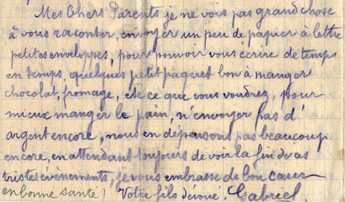 Mes Chers Parents je ne vois pas grand chose
à vous raconter, envoyer un peu de papier à lettre
petites enveloppes, pour pouvoir vous écrire de temps
en temps, quelques petit paquet bon à manger
chocolat, fromage, et ce que vous voudrez, pour
mieux manger le pain, n'envoyer pas d'
argent encore, nous en dépensons pas beaucoup
encore, en attendant toujours de voir la fin de ces
tristes événements, je vous embrasse de bon cœur
en bonne santé Votre fils dévoué. Gabriel.